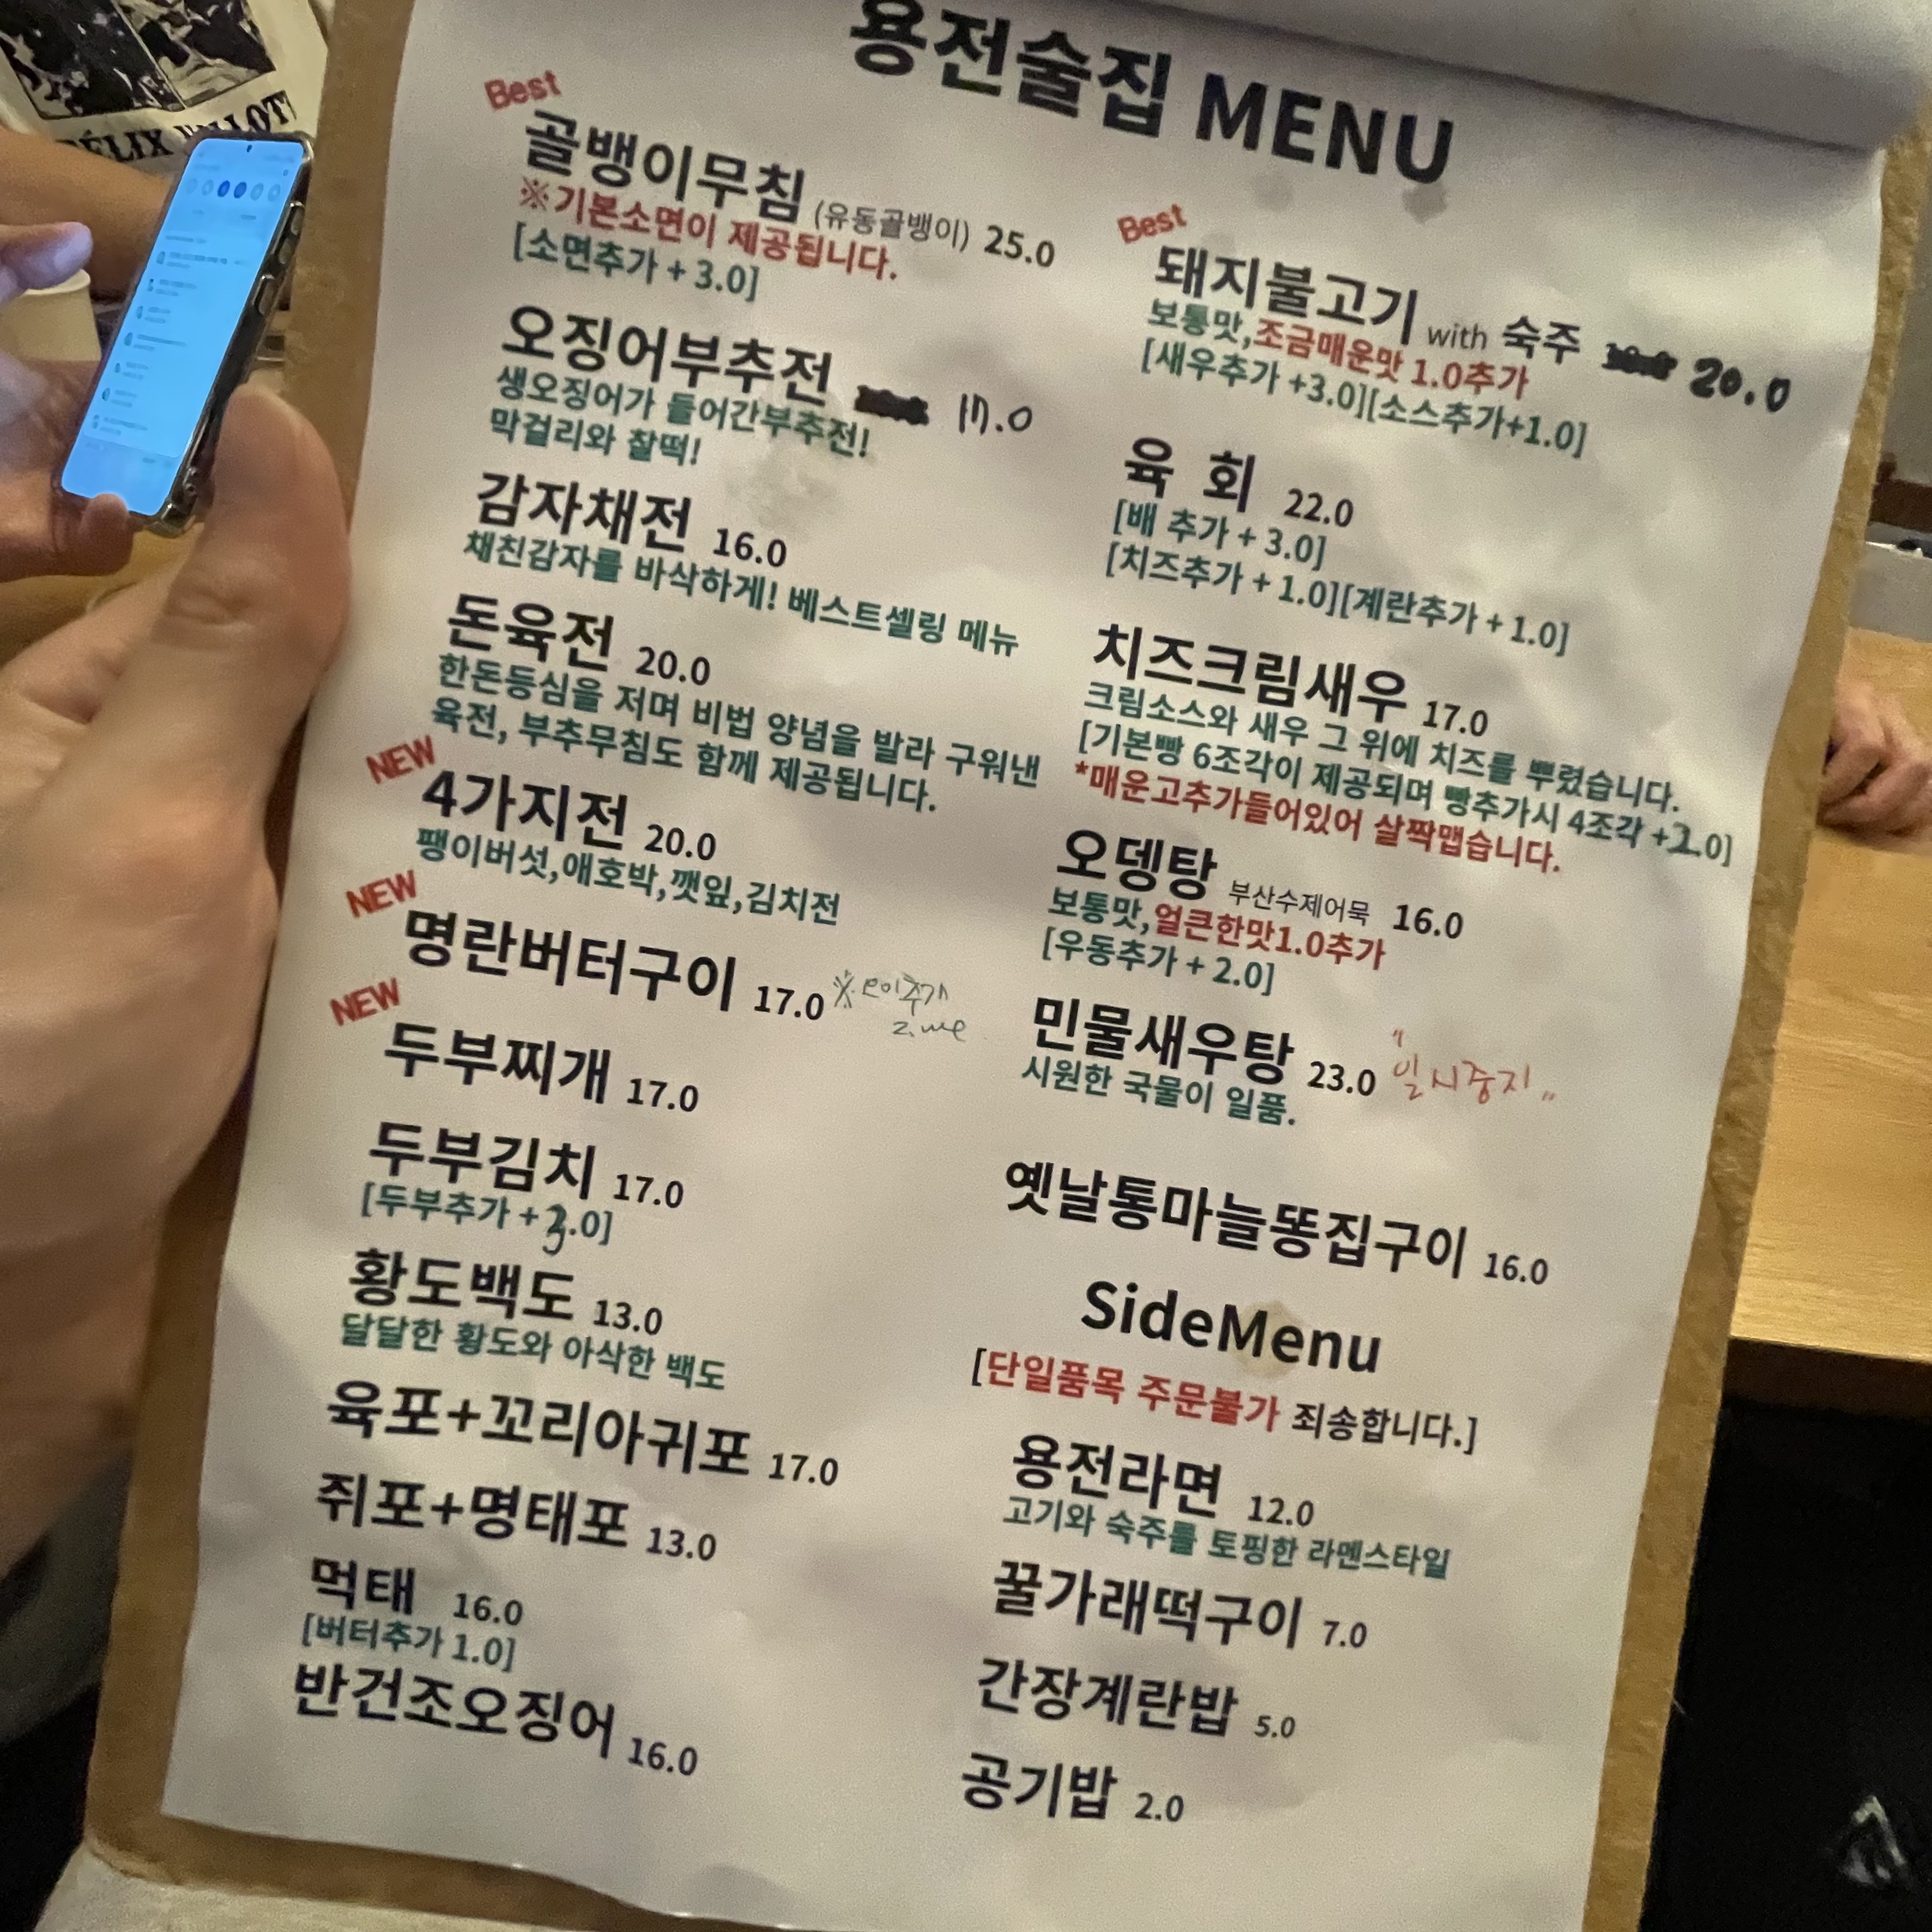 용전술집 MENU
Best
골뱅이무침 (유동골뱅이) 25.0
※기본소면이 제공됩니다.
[소면추가 + 3.0]
오징어부추전 17.0
생오징어가 들어간부추전!
막걸리와 찰떡!
감자채전 16.0
채친감자를 바삭하게! 베스트셀링 메뉴
돈육전 20.0
한돈등심을 저며 비법 양념을 발라 구워낸
육전, 부추무침도 함께 제공됩니다.
NEW
4가지전 20.0
팽이버섯,애호박,깻잎,김치전
NEW
명란버터구이 17.0
NEW
두부찌개 17.0
두부김치 17.0
[두부추가 + 3.0]
황도백도 13.0
달달한 황도와 아삭한 백도
육포+꼬리아귀포 17.0
쥐포+명태포 13.0
먹태 16.0
[버터추가 1.0]
반건조오징어 16.0
Best
돼지불고기 with 숙주 20.0
보통맛,조금매운맛 1.0추가
[새우추가 +3.0][소스추가+1.0]
육 회 22.0
[배 추가 + 3.0]
[치즈추가 + 1.0][계란추가 + 1.0]
치즈크림새우 17.0
크림소스와 새우 그 위에 치즈를 뿌렸습니다.
[기본빵 6조각이 제공되며 빵추가시 4조각 +2.0]
*매운고추가들어있어 살짝맵습니다.
오뎅탕 부산수제어묵 16.0
보통맛,얼큰한맛1.0추가
[우동추가 + 2.0]
민물새우탕 23.0 "일시중지"
시원한 국물이 일품.
옛날통마늘똥집구이 16.0
SideMenu
[단일품목 주문불가 죄송합니다.]
용전라면 12.0
고기와 숙주를 토핑한 라멘스타일
꿀가래떡구이 7.0
간장계란밥 5.0
공기밥 2.0